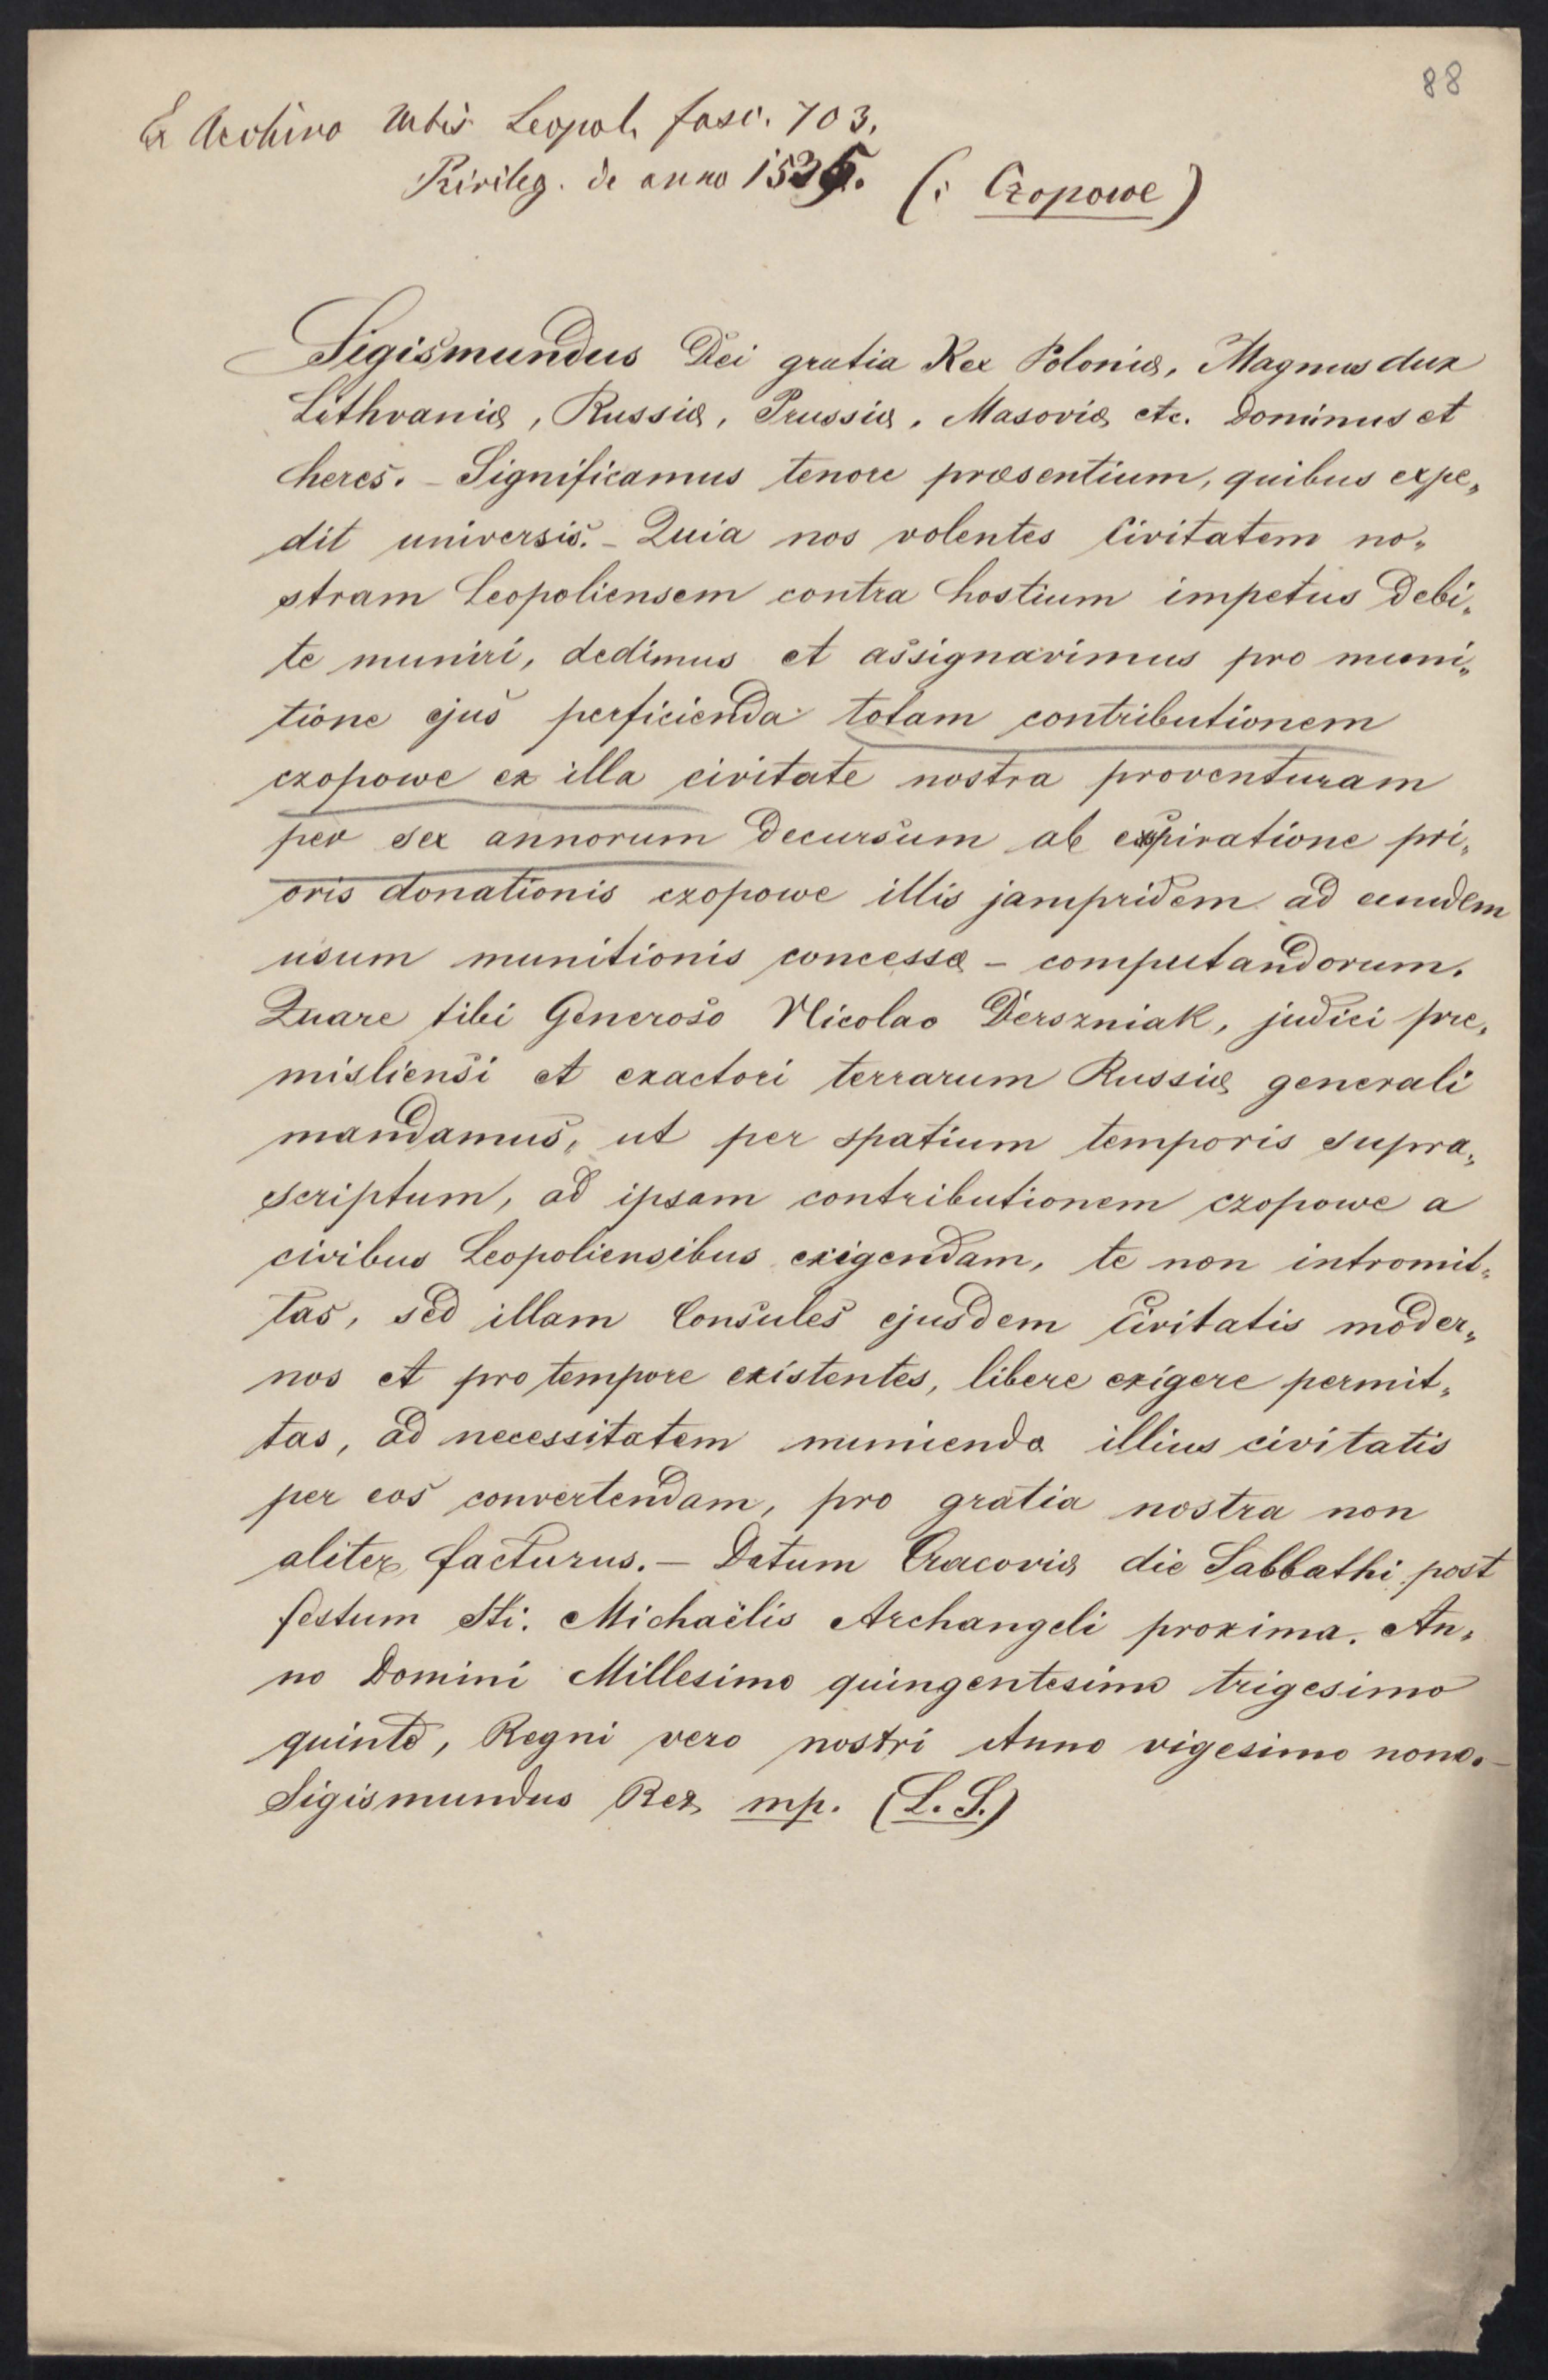 88
Ex Archivo Urbis Leopol. fasc. 703.
Privileg. de anno 1535. (: Czopowe)
Sigismundus Dei gratia Rex Poloniæ, Magnus dux
Lithvaniæ, Russiæ, Prussiæ, Masoviæ etc. Dominus et
heres. – Significamus tenore præsentium, quibus expe„
dit universis. – Quia nos volentes Civitatem no„
stram Leopoliensem contra hostium impetus debi„
te muniri, dedimus et assignavimus pro muni„
tione ejus perficienda totam contributionem
czopowe ex illa civitate nostra proventuram
per sex annorum decursum ab expiratione pri„
oris donationis czopowe illis jampridem ad eundem
usum munitionis concessæ – computandorum.
Quare tibi Generoso Nicolao Derszniak, judici pre„
misliensi et exactori terrarum Russiæ generali
mandamus, ut per spatium temporis supra„
scriptum, ad ipsam contributionem czopowe a
civibus Leopoliensibus exigendam, te non intromit„
tas, sed illam Consules ejusdem Civitatis moder„
nos et pro tempore existentes, libere exigere permit„
tas, ad necessitatem muniendæ illius civitatis
per eos convertendam, pro gratia nostra non
aliter facturus. – Datum Cracoviæ die Sabbathi post
festum Sti. Michaëlis Archangeli proxima. An„
no Domini Millesimo quingentesimo trigesimo
quinto, Regni vero nostri Anno vigesimo nono. –
Sigismundus Rex mp. (L. S.)